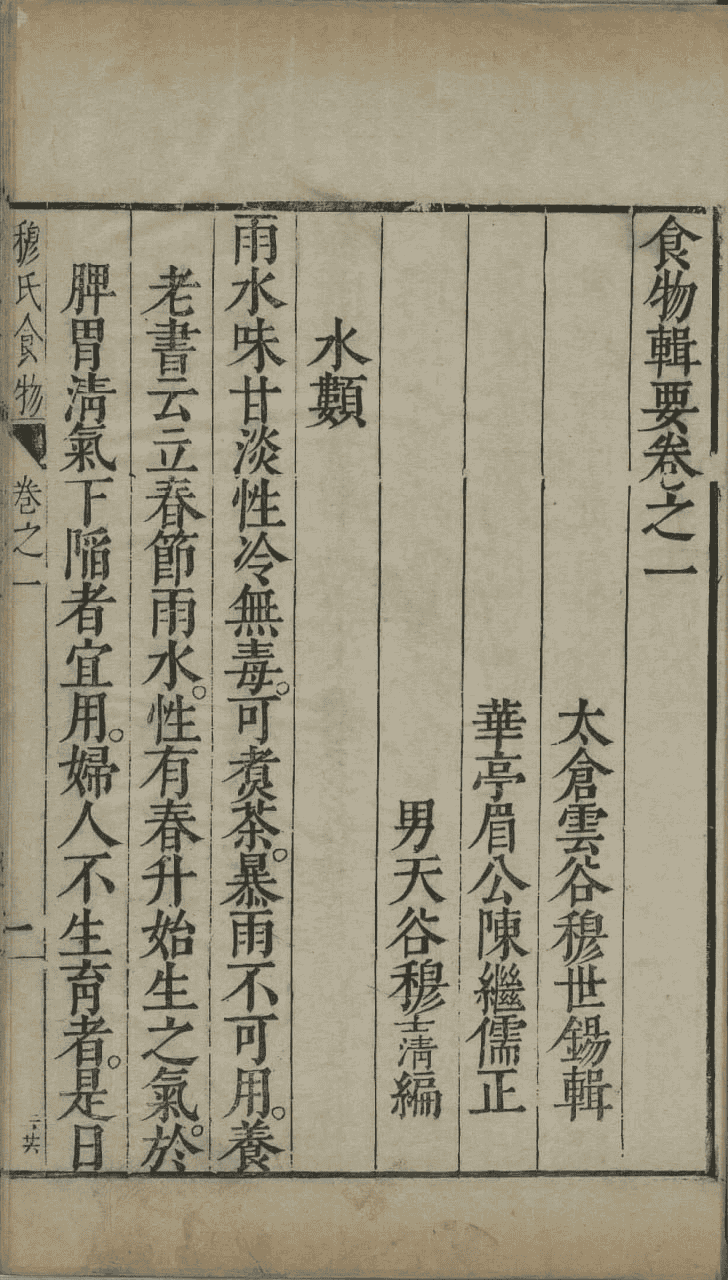 食物輯要卷之一
太倉雲谷穆世錫輯
華亭眉公陳繼儒正
男天谷穆士清編
水類
雨水味甘淡性冷無毒。可煑茶。暴雨不可用。養
老書云立春節雨水。性有春升始生之氣。於
脾胃淸氣下陷者宜用。婦人不生育者。是日
穆氏食物
卷之一
一